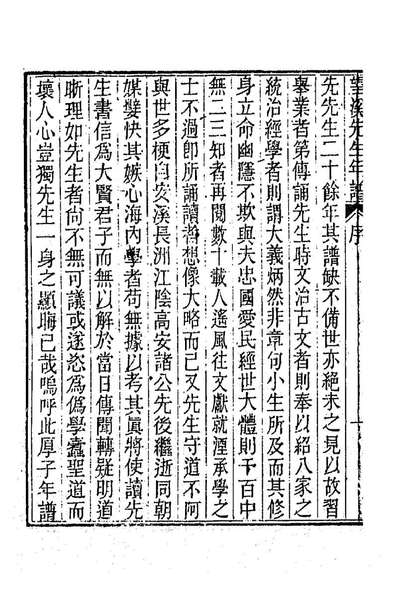 望溪先生年譜 序
先先生二十餘年其譜缺不備世亦絕未之見以故習
舉業者第傳誦先生時文治古文者則奉以紹八家之
統治經學者則謂大義炳然非章句小生所及而其修
身立命幽隱不欺與夫忠國愛民經世大體則千百中
無二三知者再閱數十載人遙風往文獻就湮承學之
士不過卽所誦讀者想像大略而已又先生守道不阿
與世多梗自安溪長洲江陰高安諸公先後繼逝同朝
媒孽快其嫉心海內學者苟無據以考其眞將使讀先
生書信爲大賢君子而無以解於當日傳聞轉疑明道
晰理如先生者尙不無可議或遂恣爲僞學蠹聖道而
壞人心豈獨先生一身之顯晦已哉嗚呼此厚子年譜